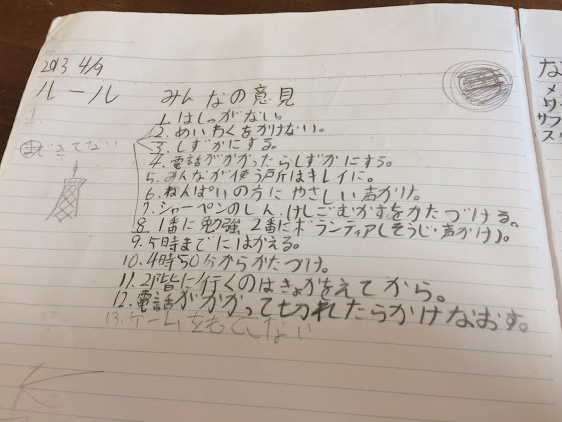 2013 4/9
ルール みんなの意見
1. はしらない。
2. めいわくをかけない。
3. しずかにする。
できてない
4. 電話がかかったらしずかにする。
5. みんなが使う所はキレイに。
6. ねんぱいの方にやさしい声かけ。
7. シャーペンのしん、けしごむかすをかたづける。
8. 1番に勉強 2番にボランティア(そうじ・声かけ)。
9. 5時までにはかえる。
10. 4時50分からかたづけ。
11. 2階に行くのはきょかをえてから。
12. 電話がかかって切れたらかけなおす。
13. ゲームをもってない
な
メ
ワ
サフ
ス